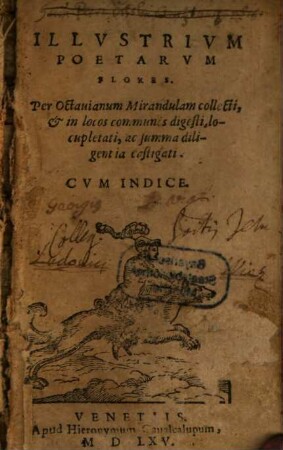 ILLVSTRIVM
POETARVM
FLORES.
Per Octauianum Mirandulam collecti,
& in locos communes digesti, lo-
cupletati, ac summa dili-
gentia castigati.
CVM INDICE.
Georgij
Colleg.
VENETIIS
Apud Hieronymum Caualcalupum,
M D LXV.